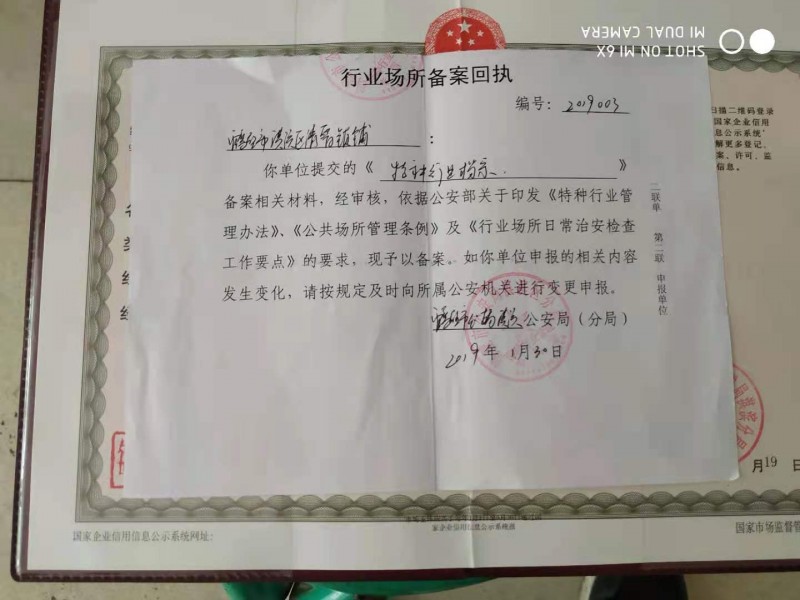 SHOT ON MI 6X
MI DUAL CAMERA
行业场所备案回执
编号：2019003
：
你单位提交的《 特种行业 》
备案相关材料，经审核，依据公安部关于印发《特种行业管
理办法》、《公共场所管理条例》及《行业场所日常治安检查
工作要点》的要求，现予以备案。如你单位申报的相关内容
发生变化，请按规定及时向所属公安机关进行变更申报。
公安局（分局）
2019年1月30日
二联单 第二联 申报单位
扫描二维码登录
国家企业信用
信息公示系统
解更多登记、
案、许可、监
信息。
月19日
国家企业信用信息公示系统网址：
国家市场监督